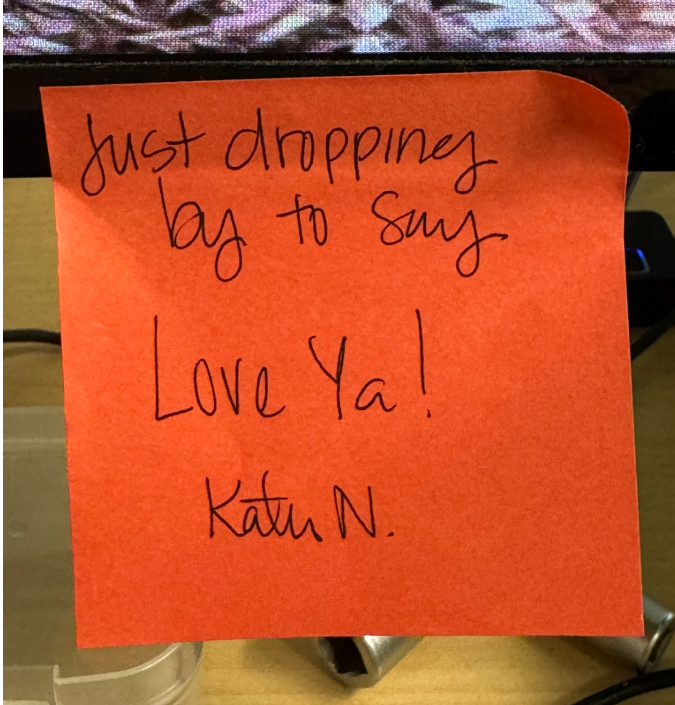 Just dropping
by to say
Love Ya!
N.